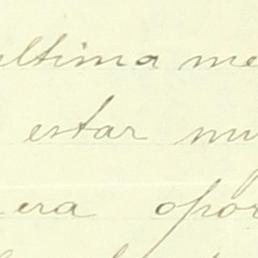 ultima me
estar mu
era opor